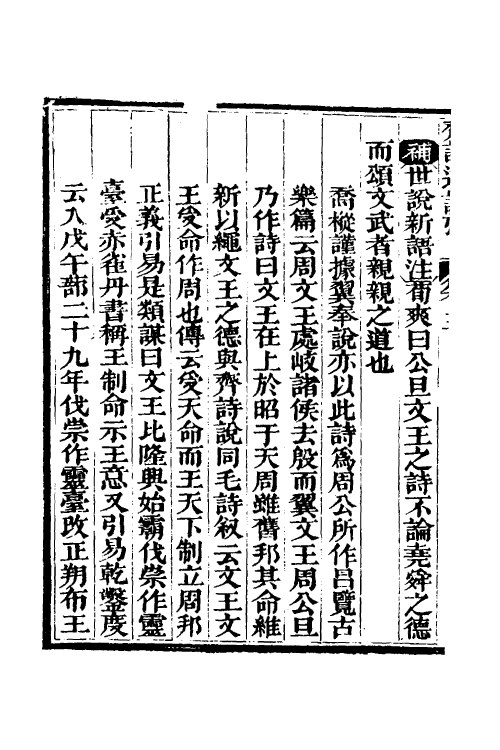 補世說新語注荀爽曰公旦文王之詩不論堯舜之德
而頌文武者親親之道也
喬樅謹據翼奉說亦以此詩爲周公所作呂覽古
樂篇云周文王處岐諸侯去殷而翼文王周公旦
乃作詩曰文王在上於昭于天周雖舊邦其命維
新以繩文王之德與齊詩說同毛詩敘云文王文
王受命作周也傳云受天命而王天下制立周邦
正義引易是類謀曰文王比隆興始霸伐崇作靈
臺受赤雀丹書稱王制命示王意又引易乾鑿度
云入戊午蔀二十九年伐崇作靈臺改正朔布王